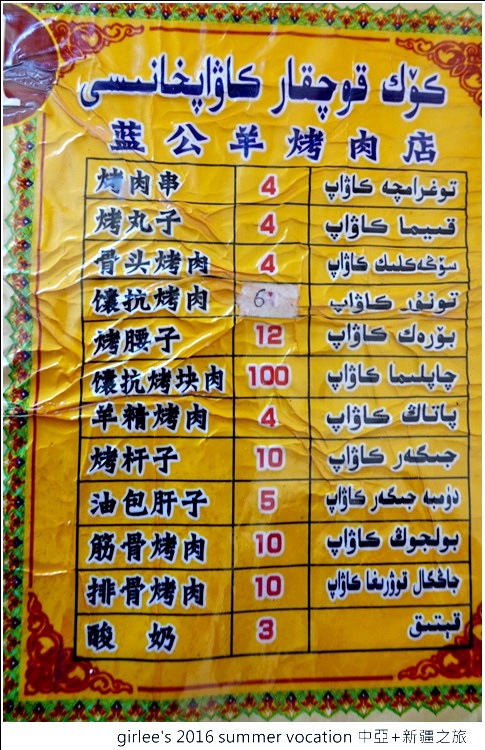 كۆك قوچقار كاۋاپخانىسى
蓝公羊烤肉店
烤肉串 4 توغرامچە كاۋاپ
烤丸子 4 قىيما كاۋاپ
骨头烤肉 4 سۆڭەكلىك كاۋاپ
馕抗烤肉 6 تونۇر كاۋاپ
烤腰子 12 بۆرەك كاۋاپ
馕抗烤块肉 100 چاپلىما كاۋاپ
羊精烤肉 4 پاتاڭ كاۋاپ
烤杆子 10 جىگەر كاۋاپ
油包肝子 5 دۈمبە جىگەر كاۋاپ
筋骨烤肉 10 بولجوڭ كاۋاپ
排骨烤肉 10 جاڭگال قوۋۇرغا كاۋاپ
酸奶 3 قېتىق
girlee's 2016 summer vocation 中亞+新疆之旅